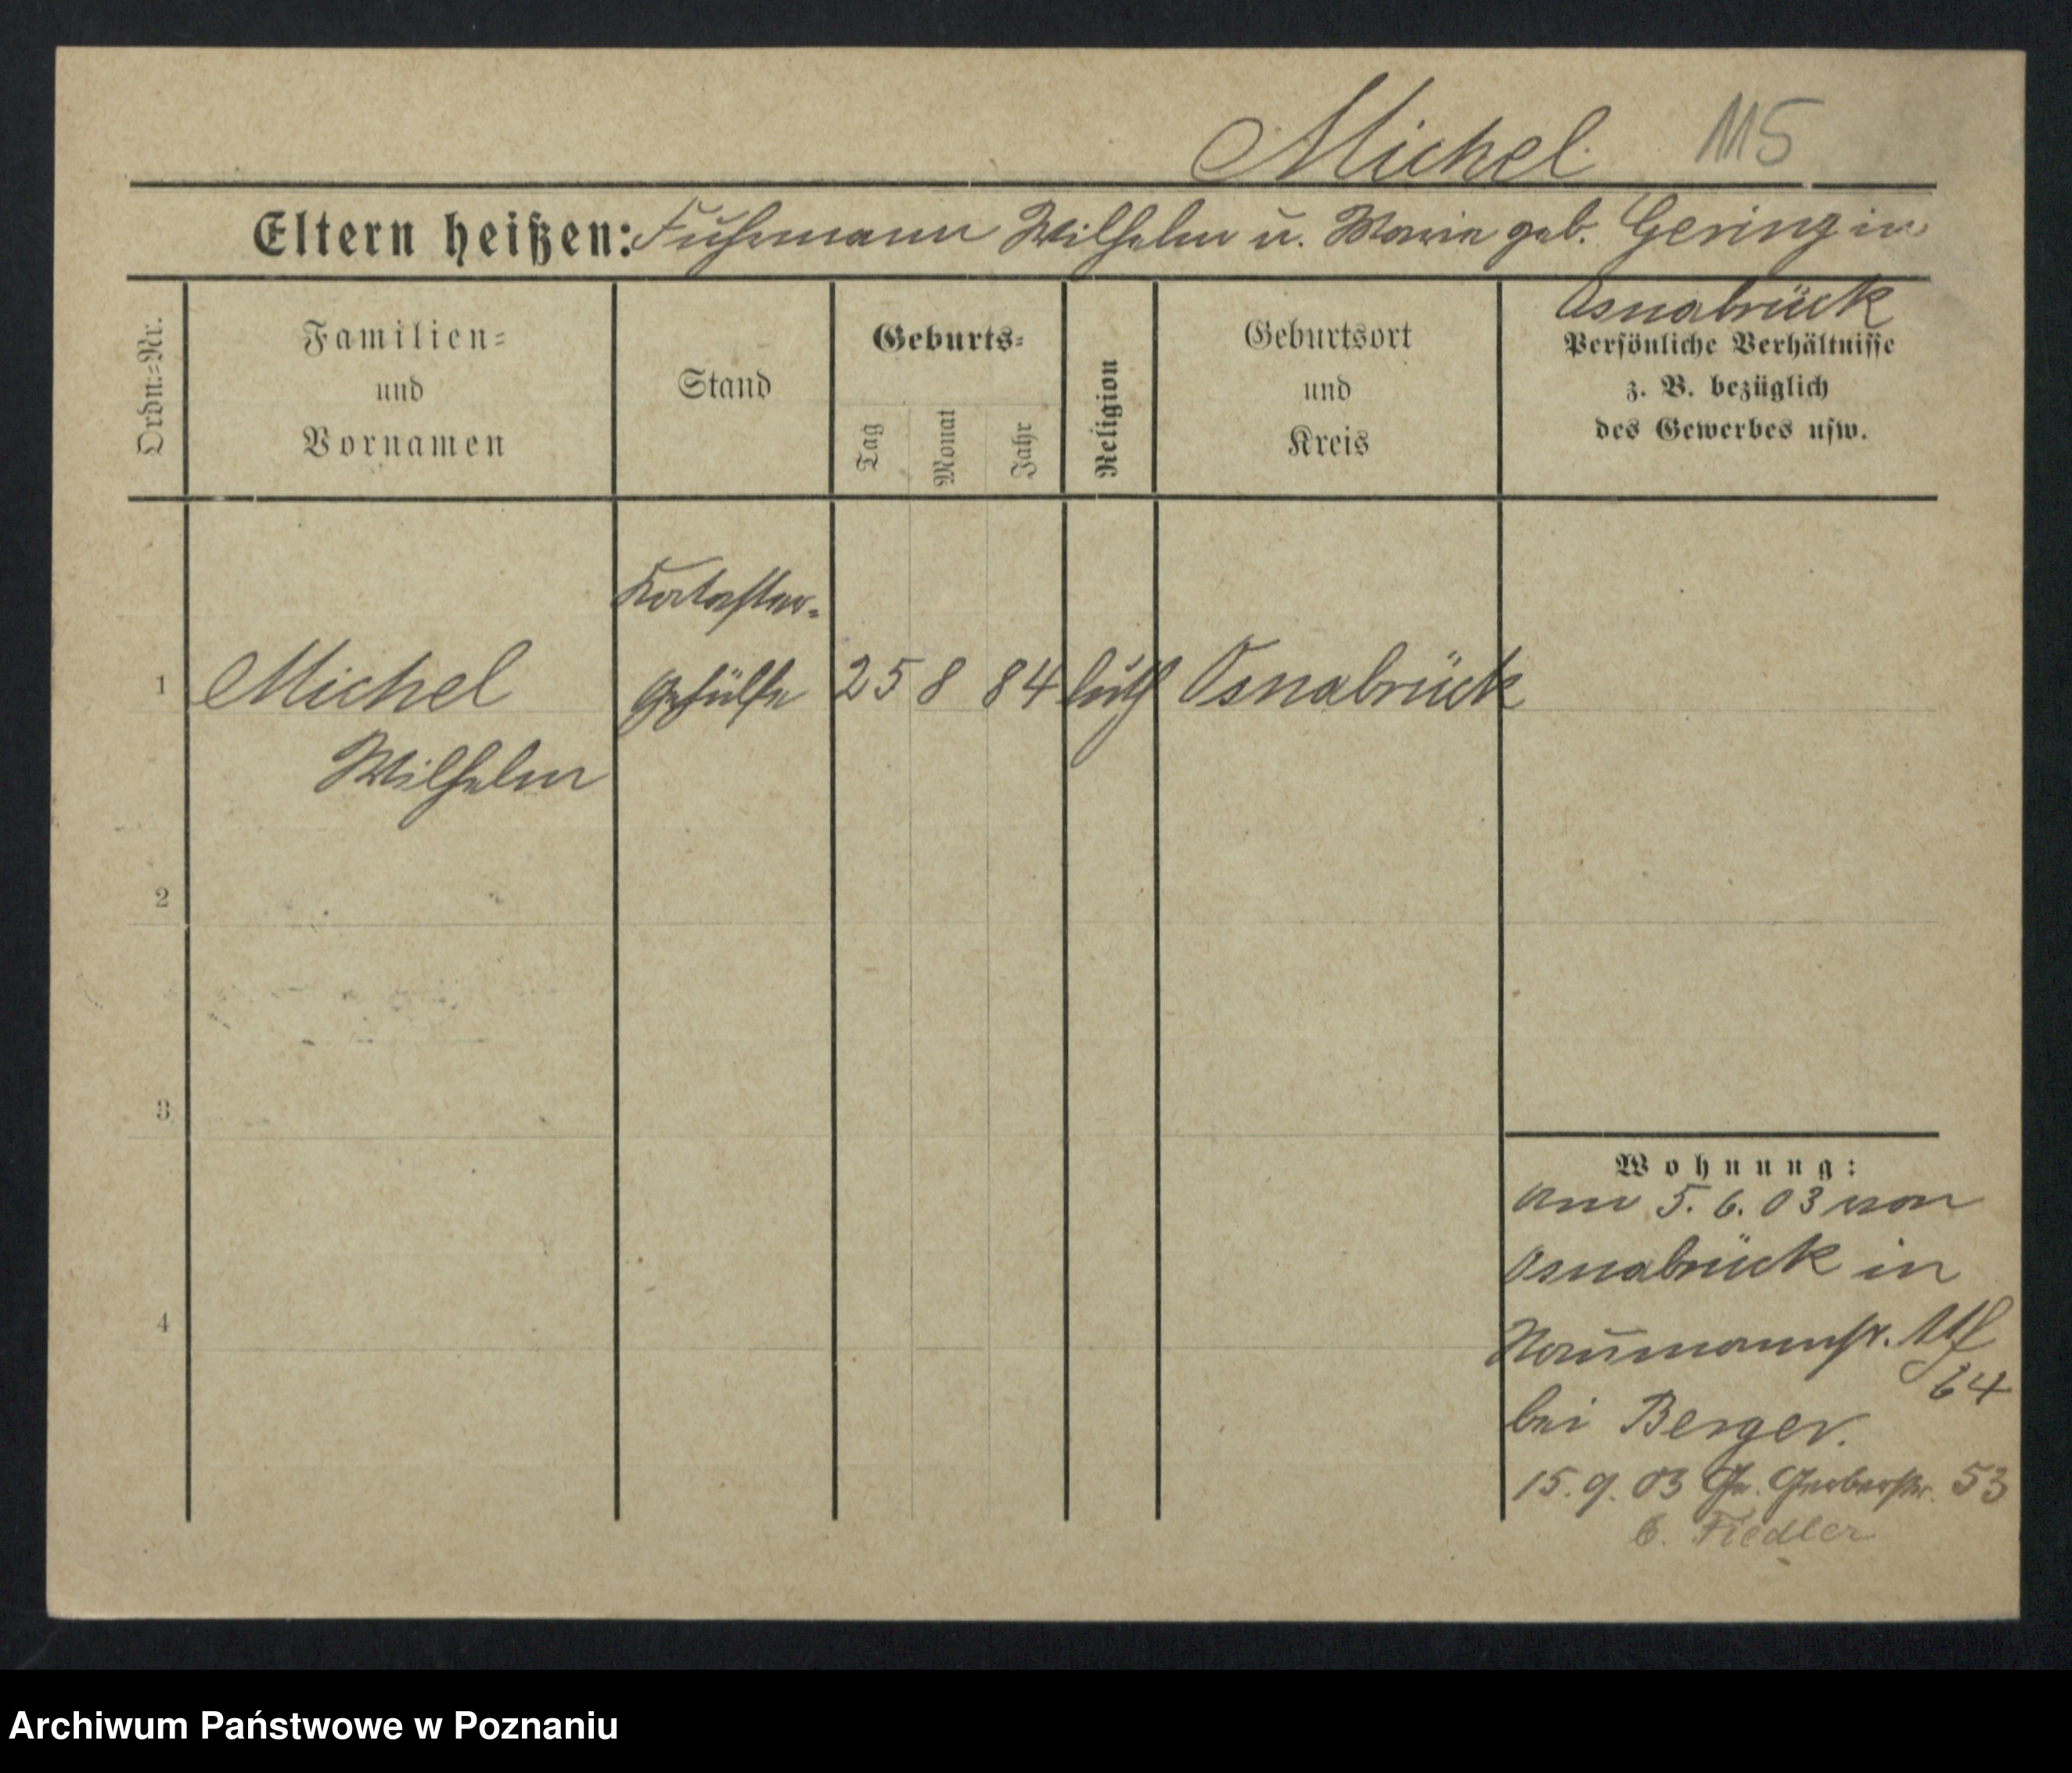 Michel 115
Eltern heißen: Fuhrmann Wilhelm u. Marie geb. Gering in
Osnabrück
Ordn.=Nr.
Familien=
und
Vornamen
Stand
Geburts=
Tag
Monat
Jahr
Religion
Geburtsort
und
Kreis
Persönliche Verhältnisse
z. B. bezüglich
des Gewerbes usw.
Kataster-
1 Michel gehülfe 25 8 84 luth Osnabrück
Wilhelm
2
3
4
Wohnung:
am 5. 6. 03 von
Osnabrück in
Naumannstr.
64
bei Berger.
15. 9. 03 Gr. Gerberstr. 53
b. Fiedler
Archiwum Państwowe w Poznaniu